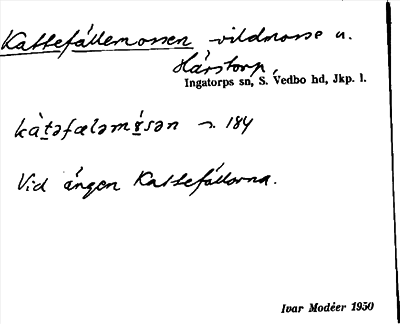 Kattefällemossen vildmosse u.
Härstorp,
Ingatorps sn, S. Vedbo hd, Jkp. l.
kàtəfæləmósən s. 184
Vid ängen Kattefällorna.
Ivar Modéer 1950